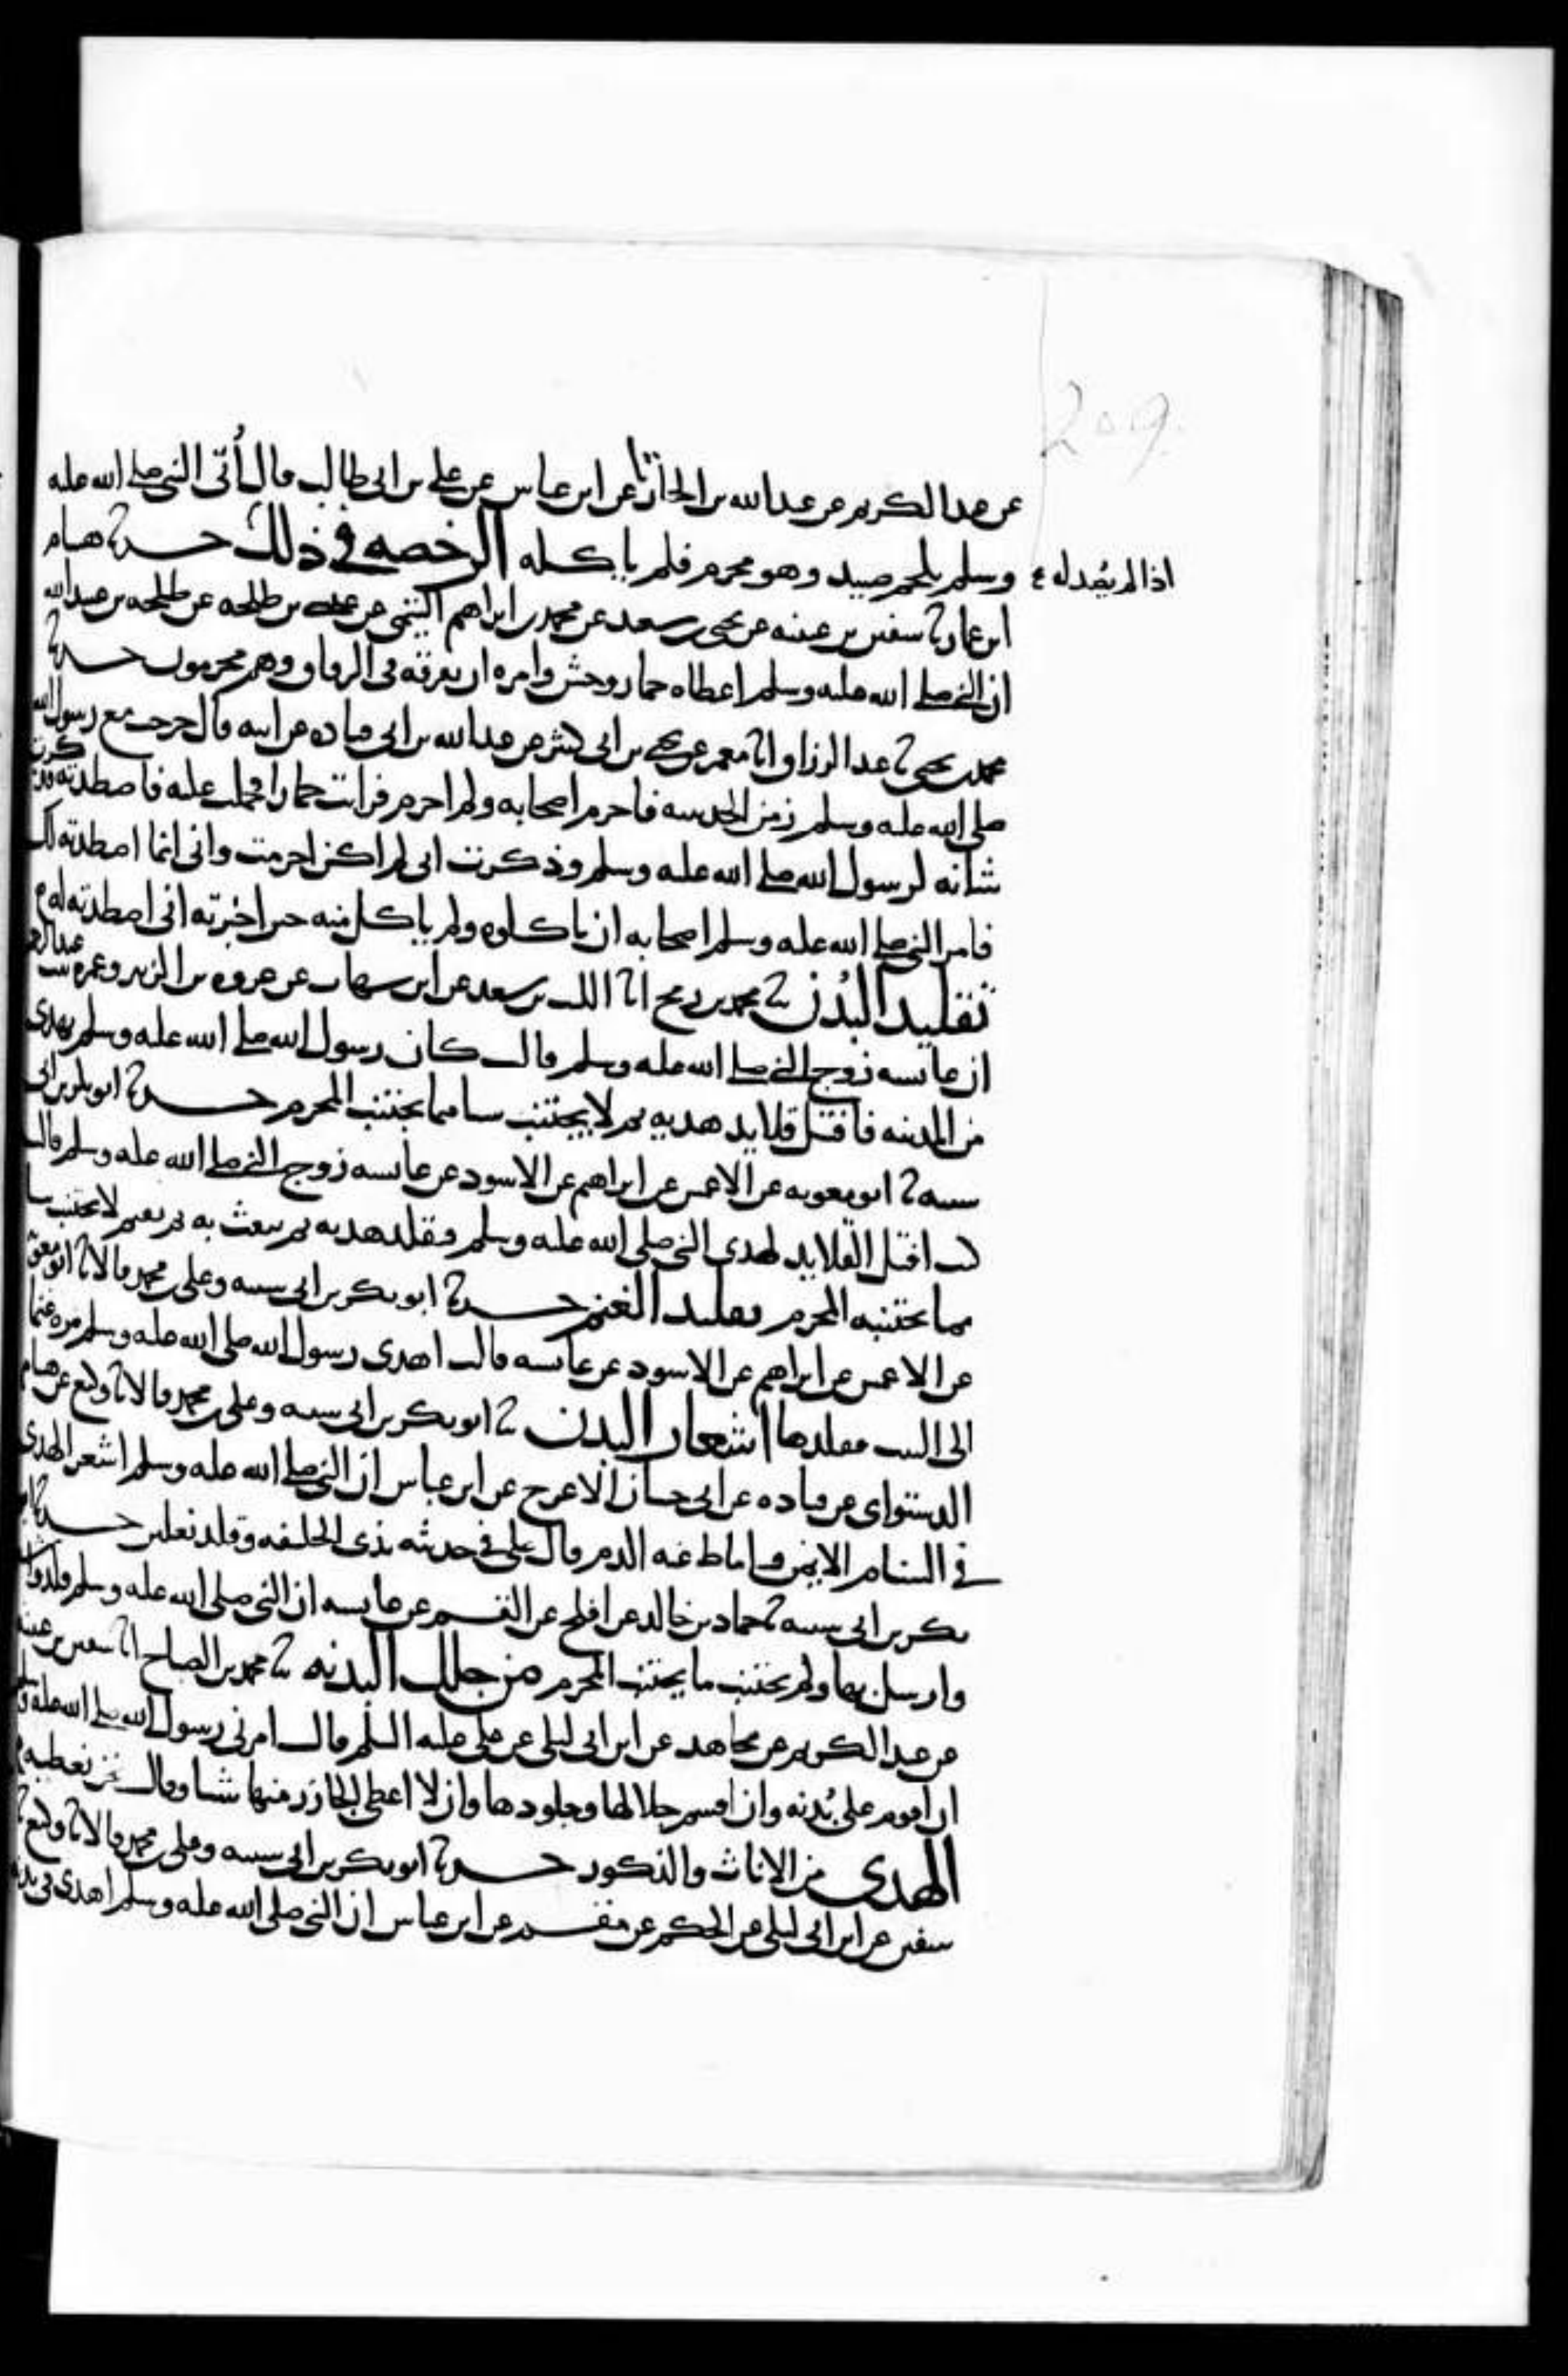 209
عن عبد الكريم عن عبد الله بن الحارث عن ابن عباس عن علي بن ابي طالب قال أُتي النبي صلى الله عليه
وسلم بلحم صيد وهو محرم فلم ياكله الرخصه في ذلك حدثنا هشام
اذا لم يُصد له
ابن عمار نا سفين بن عيينه عن يحيى بن سعيد عن محمد بن ابراهيم التيمي عن عيسى بن طلحه عن طلحه بن عبيد الله
ان النبي صلى الله عليه وسلم اعطاه حمار وحش وامره ان يفرقه في الرفاق وهم محرمون حدثنا
محمد بن يحيى نا عبد الرزاق انا معمر عن يحيى بن ابي كثير عن عبد الله بن ابي قتاده عن ابيه قال خرجت مع رسول الله
صلى الله عليه وسلم زمن الحديبيه فاحرم اصحابه ولم احرم فرايت حمارا فحملت عليه فاصطدته فذكرت
شانه لرسول الله صلى الله عليه وسلم وذكرت اني لم اكن احرمت واني انما اصطدته لك
فامر النبي صلى الله عليه وسلم اصحابه ان ياكلوه ولم ياكل منه حين اخبرته اني اصطدته له
تقليد البُدن نا محمد بن رمح انا الليث بن سعد عن ابن شهاب عن عروه بن الزبير وعمره بنت عبد الرحمن
ان عائشه زوج النبي صلى الله عليه وسلم قالت كان رسول الله صلى الله عليه وسلم يهدي
من المدينه فافتل قلايد هديه ثم لا يجتنب شيا مما يجتنب المحرم حدثنا ابو بكر بن ابي
شيبه نا ابو معويه عن الاعمش عن ابراهيم عن الاسود عن عائشه زوج النبي صلى الله عليه وسلم قالت
كنت افتل القلايد لهدي النبي صلى الله عليه وسلم فيقلد هديه ثم يبعث به ثم يقيم لا يجتنب شيا
مما يجتنبه المحرم تقليد الغنم حدثنا ابو بكر بن ابي شيبه وعلي بن محمد قالا نا ابو معويه
عن الاعمش عن ابراهيم عن الاسود عن عائشه قالت اهدى رسول الله صلى الله عليه وسلم مره غنما
الى البيت فقلدها اشعار البدن نا ابو بكر بن ابي شيبه وعلي بن محمد قالا نا وكيع عن هشام
الدستواي عن قتاده عن ابي حسان الاعرج عن ابن عباس ان النبي صلى الله عليه وسلم اشعر الهدي
في السنام الايمن واماط عنه الدم وقال علي في حديثه بذي الحليفه وقلد نعلين حدثنا ابو
بكر بن ابي شيبه نا حماد بن خالد عن افلح عن القسم عن عائشه ان النبي صلى الله عليه وسلم قلد واشعر
وارسل بها ولم يجتنب ما يجتنب المحرم من جلل البدنه نا محمد بن الصباح انا سفين بن عيينه
عن عبد الكريم عن مجاهد عن ابن ابي ليلى عن علي عليه السلم قال امرني رسول الله صلى الله عليه وسلم
ان اقوم على بُدنه وان اقسم جلالها وجلودها وان لا اعطي الجازر منها شيا وقال نحن نعطيه
الهدي من الاناث والذكور حدثنا ابو بكر بن ابي شيبه وعلي بن محمد قالا نا وكيع نا
سفين عن ابن ابي ليلى عن الحكم عن مقسم عن ابن عباس ان النبي صلى الله عليه وسلم اهدى في بدنه